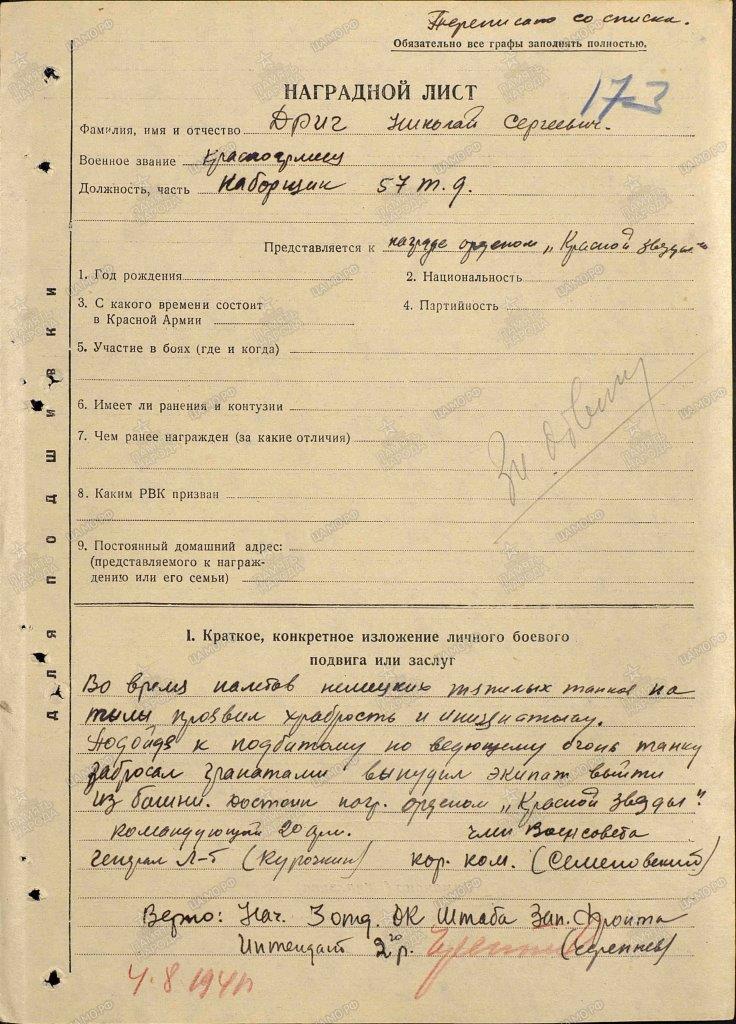 Переписано со списка.
Обязательно все графы заполнять полностью.
НАГРАДНОЙ ЛИСТ
173
Фамилия, имя и отчество Дриг Николай Сергеевич.
Военное звание Красноармеец
Должность, часть Наборщик 57 т.д.
Представляется к награде орденом „Красной звезды"
1. Год рождения
2. Национальность
3. С какого времени состоит
в Красной Армии
4. Партийность
5. Участие в боях (где и когда)
6. Имеет ли ранения и контузии
7. Чем ранее награжден (за какие отличия)
8. Каким РВК призван
9. Постоянный домашний адрес:
(представляемого к награж-
дению или его семьи)
ДЛЯ ПОДШИВКИ
I. Краткое, конкретное изложение личного боевого
подвига или заслуг
Во время налетов немецких тяжелых танков на
тылы проявил храбрость и инициативу.
Подойдя к подбитому но ведующему огонь танку
забросал гранатами вынудил экипаж выйти
из башни. Достоин нагр. орденом „Красной звезды".
Командующий 20 арм. член Военсовета
генерал Л-т (Курочкин) кор. ком. (Семеновский)
Верно: Нач. 3 отд. ОК Штаба Зап. Фронта
Интендант 2го р.
4.8.1941
ЦАМО.РФ
ПАМЯТЬ НАРОДА